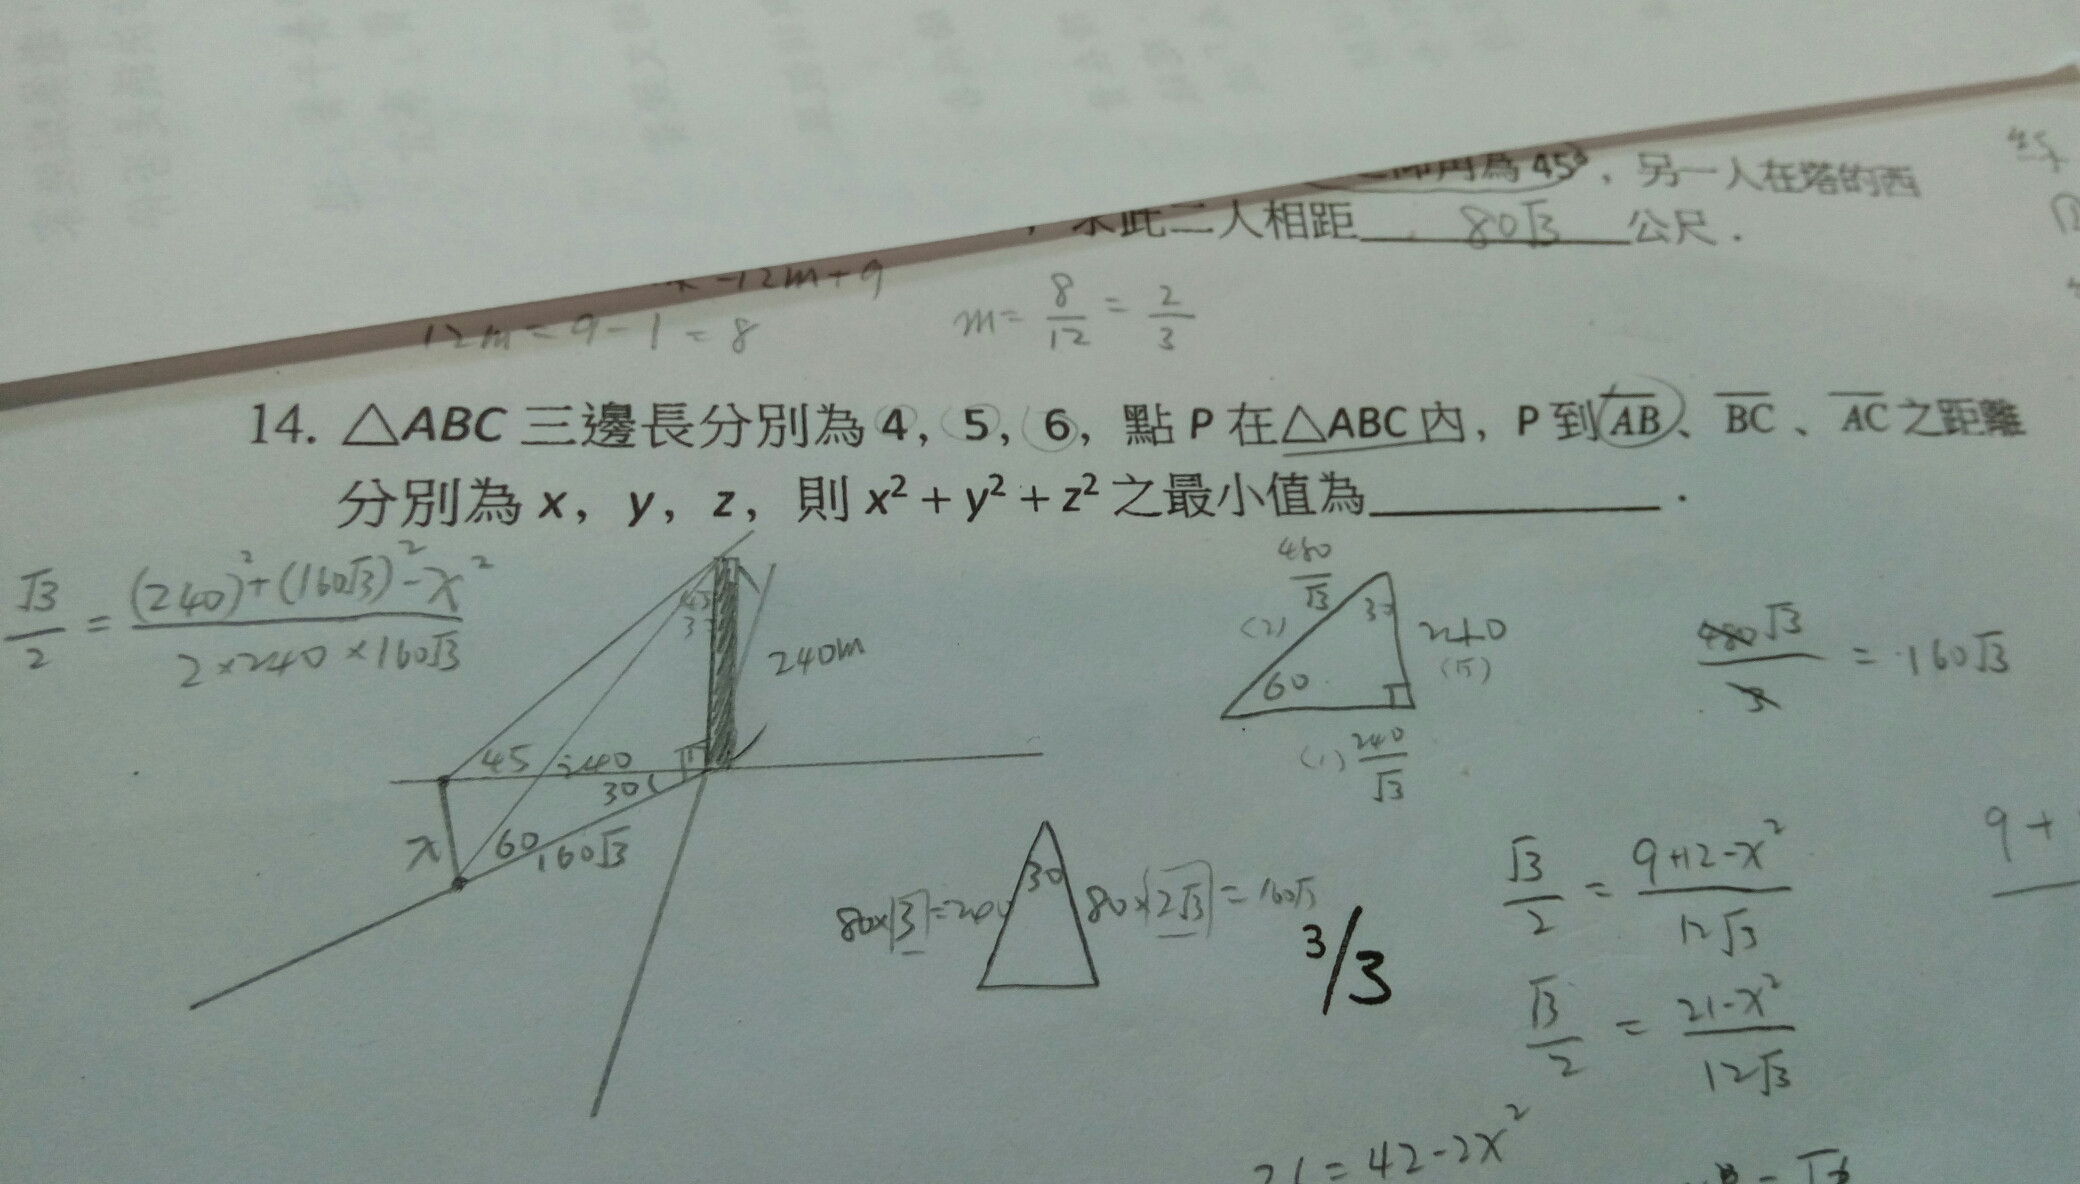 為 45°，另一人在塔的西
此二人相距 80√3 公尺．
-12m+9
12m=9-1=8
m= 8/12 = 2/3
14. △ABC 三邊長分別為 4，5，6，點 P 在△ABC 內，P 到 AB、BC、AC 之距離
分別為 x，y，z，則 x²+y²+z² 之最小值為________．
√3/2 = ((240)²+(160√3)²-x²)/(2×240×160√3)
45
240m
45 240
30
x
60 160√3
480/√3
(2)
30
240
60
(1) 240/√3
480√3/3 = 160√3
30
80×3=240
80×2√3=160√3
3/3
√3/2 = (9+12-x²)/(12√3)
√3/2 = (21-x²)/(12√3)
9+
=42-2x²